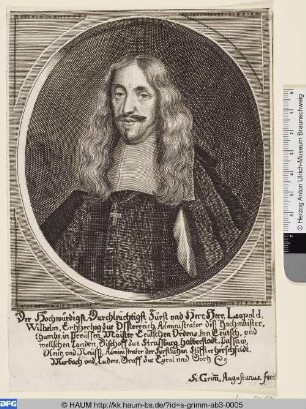 Der Hochwürdigst, Durchleuchtigst Fürst und Herr, Herr, Leopold,
Wilhelm, Ertzhertzog zu Osstereich Administrator deß Hochmaister,
thumbs in Preussen, Maister Teutschen Ordens Inn Teutsch, und
welschen Landen, Bischoff zu Straßburg, Halberstadt, Passaw,
Olmüz und Administrator der Fürstlichen Stiffter Herschfeldt,
Murbach und Luders, Graff zu Tyrol und
S. Grim, Augustanus. fec:
© Herzog Anton Ulrich-Museum Braunschweig
DFG © HAUM http://kk.haum-bs.de/?id=s-grimm-ab3-0005